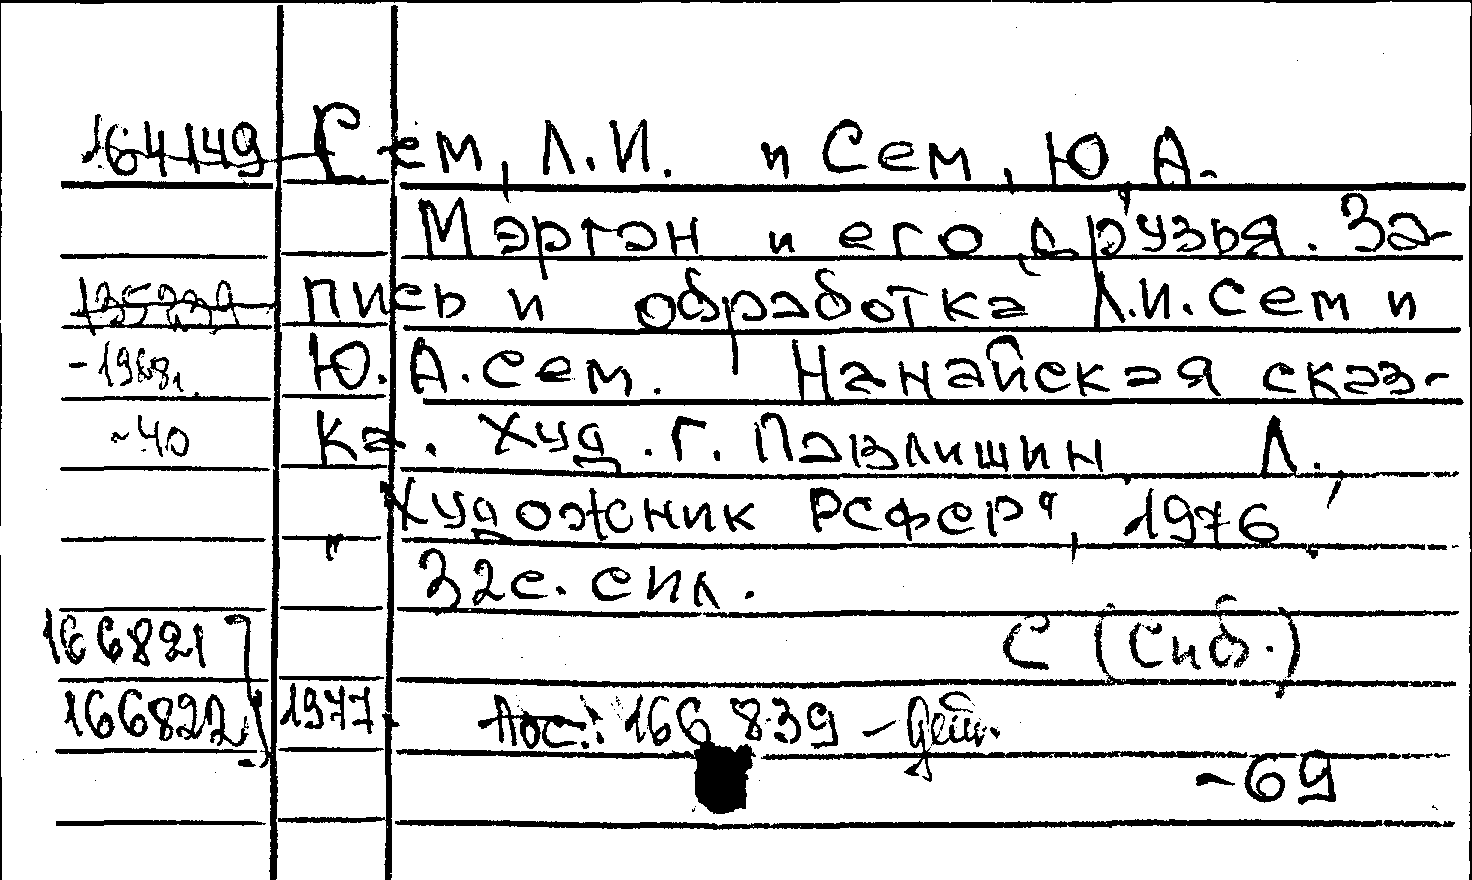 164149 Сем, Л.И. и Сем, Ю.А.
Мэргэн и его друзья. За-
135239 пись и обработка Л.И. Сем и
-1968. Ю.А. Сем. Нанайская сказ-
-40 ка. Худ. Г. Павлишин Л.,
"Художник РСФСР", 1976.
32с. с ил.
166821 С (Сиб.)
166822 1977. Дос.: 166 839 - Дет.
-69